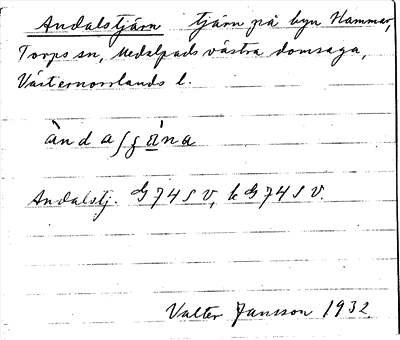 Andalstjärn tjärn på byn Hammar,
Torps sn, Medelpads västra domsaga,
Västernorrlands l.
àndaʃʒána
Andalstj. G 74 S V, k G 74 S V.
Valter Jansson 1932